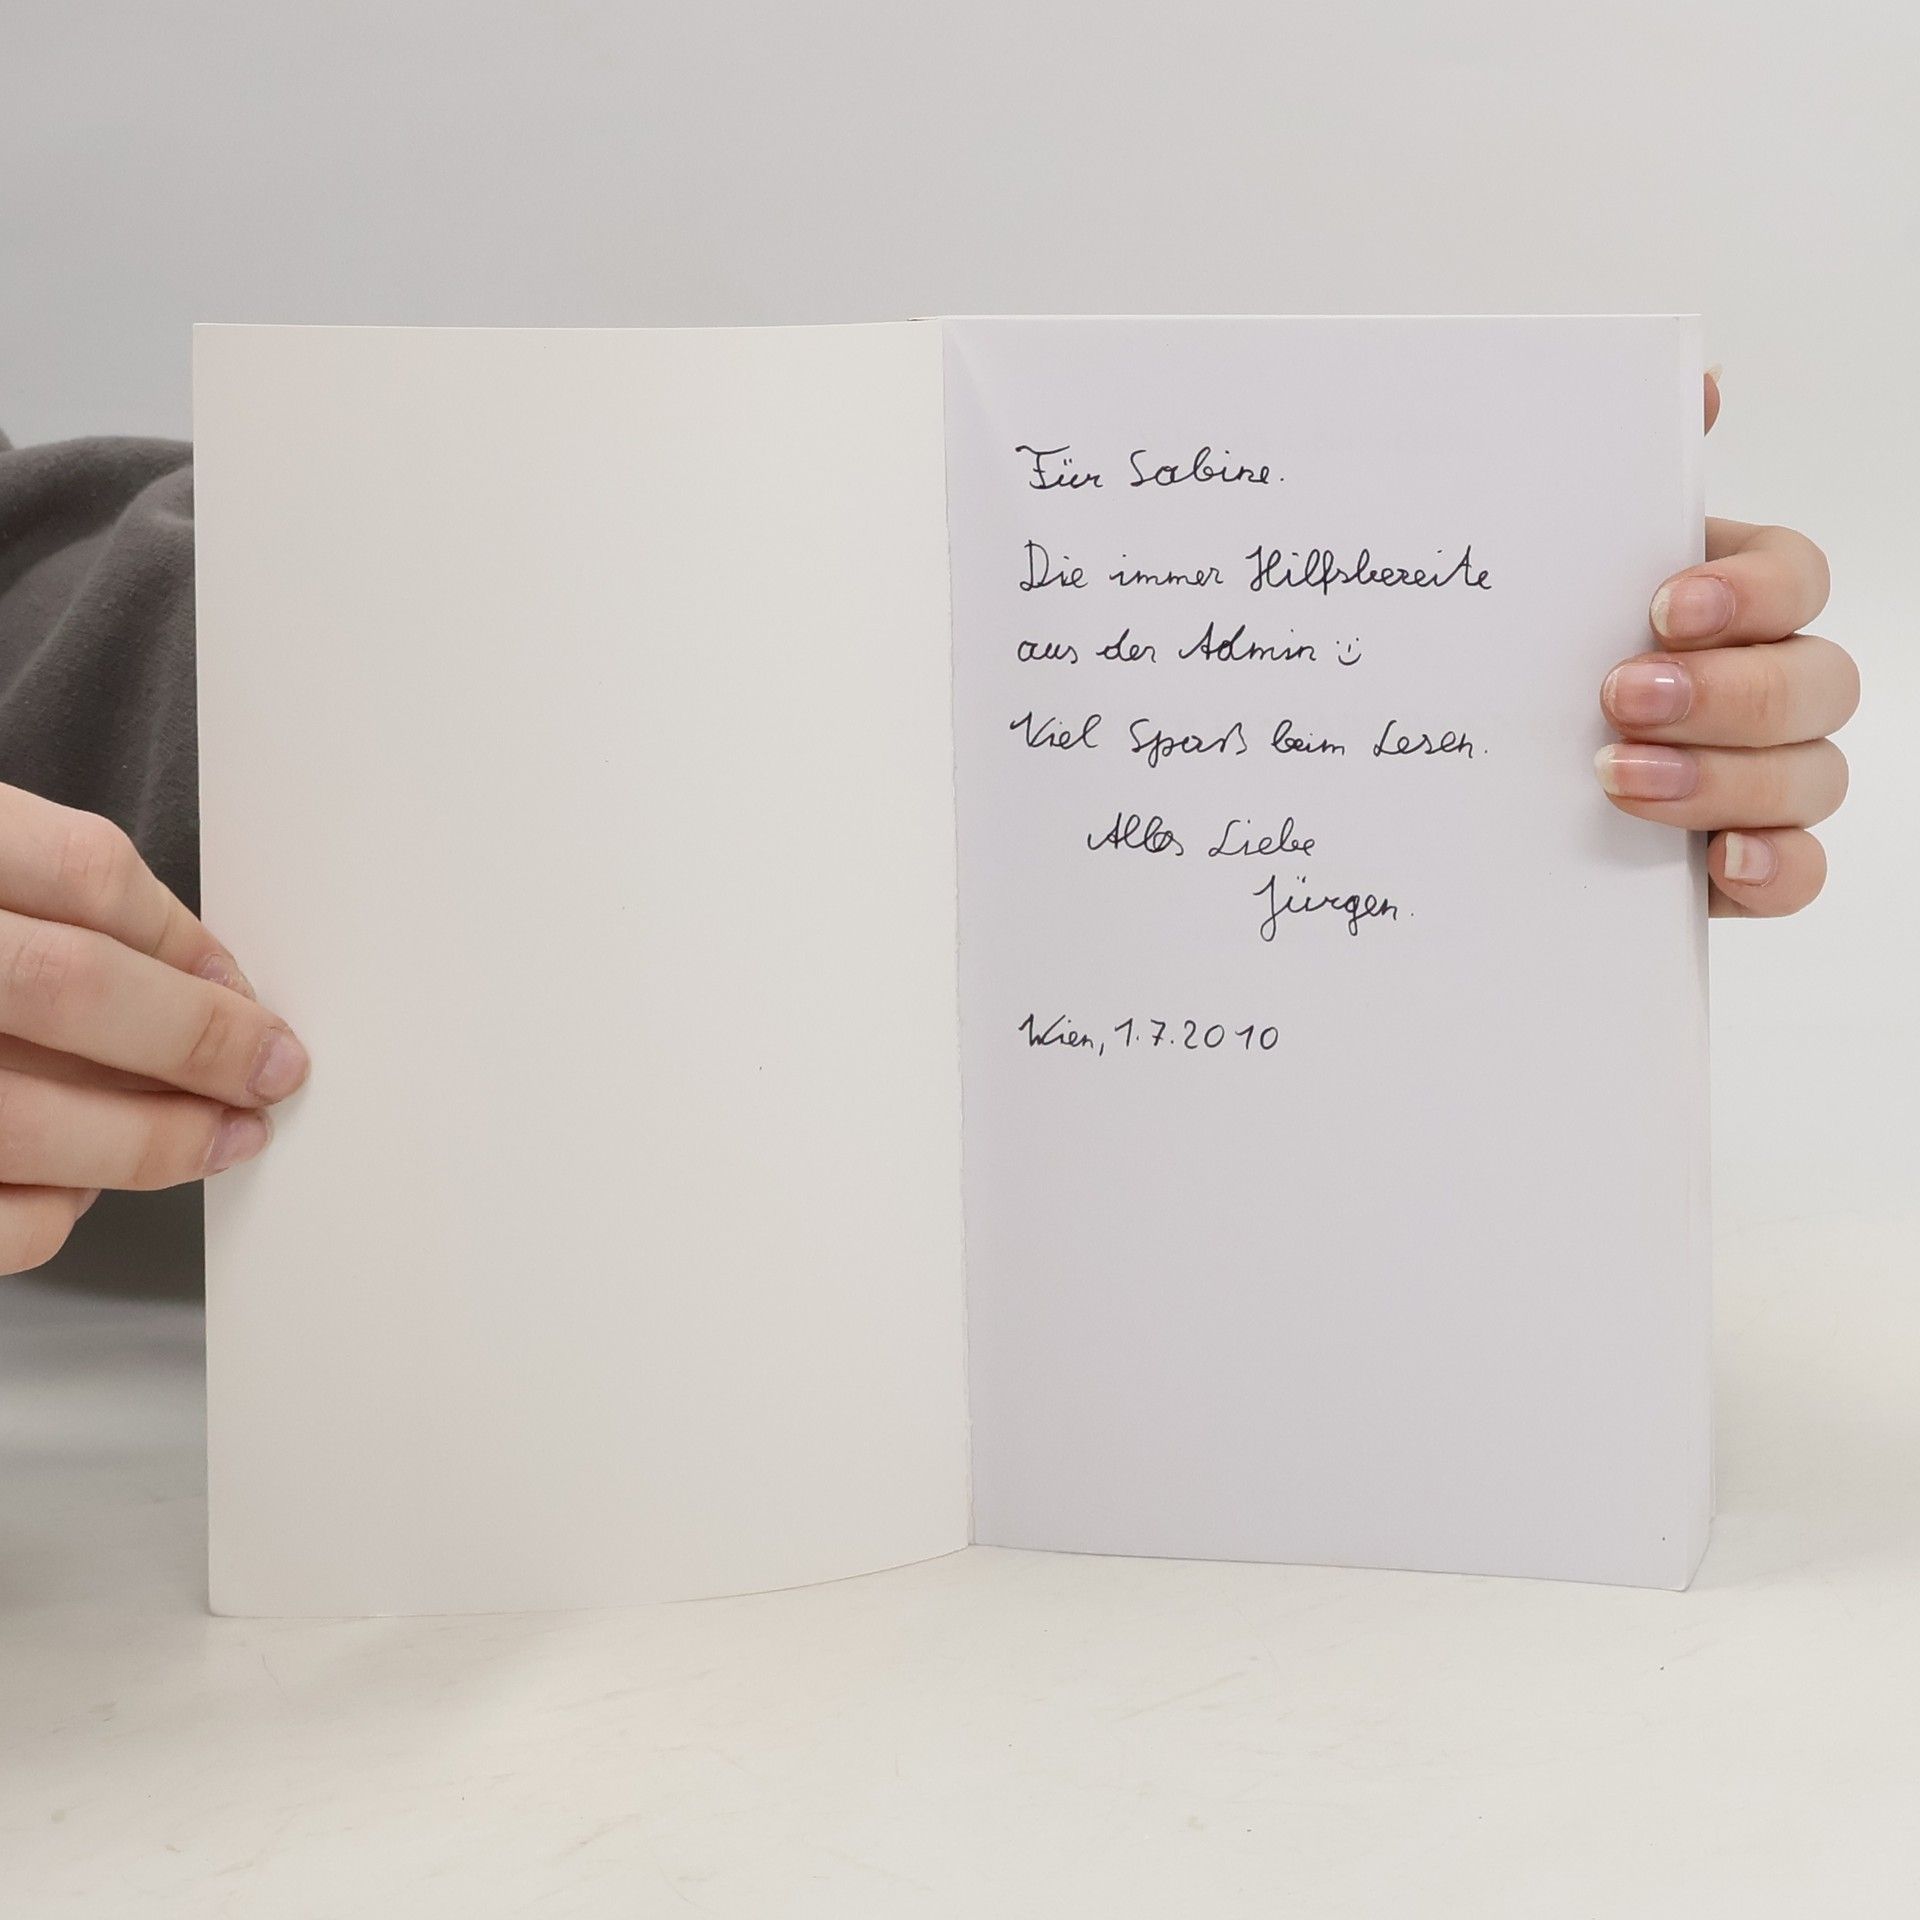 Für Sabine.
Die immer Hilfsbereite
aus der Admin :)
Viel Spaß beim Lesen.
Alles Liebe
Jürgen.
Wien, 1.7.2010